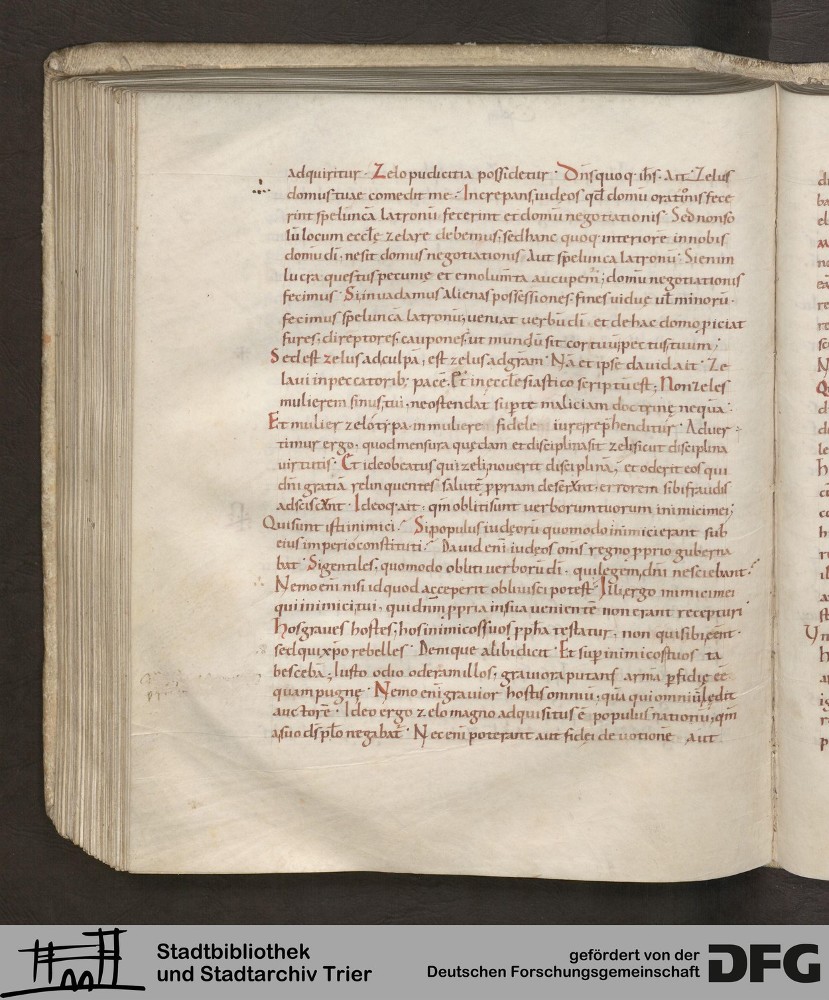 adquiritur · Zelo pudicitia possidetur · Dn̄s quoq· ih̄s· Ait· Zelus
domus tuae comedit me· Increpans iudęos qđ domū orationis fece
rint speluncā latronū fecerint et domū negotiationis · Sed non so
lū locum eccl̄ę zelare debemus· sed hanc quoq· interiorē in nobis
domū dī· ne sit domus negotiationis Aut spelunca latronū · Si enim
lucra questus pecunię et emolum̄ta aucupem̄; domū negotiationis
fecimus · Si inuadamus alienas possessiones· fines uiduę ul̄ minorū·
fecimus speluncā latronū; ueniat uerbū dī· et de hac domo p̱iciat
fures· direptores· caupones· ut mundū sit cor tuū; pectus tuum;
Sed est zelus ad culpā; est zelus ad gr̄am · Nā et ipse dauid ait · Ze
laui in peccatorib; pacē· Et in ecclesiastico scriptū est; Non zeles
mulierem sinus tui· ne ostendat sup te maliciam doctrinę nequā·
Et mulier zelotypa in muliere fidele iure rep̄henditur · Aduer
timus ergo· quod mensura quędam et disciplina sit zeli sicut disciplina
uirtutis · Et ideo beatus qui zeli nouerit disciplinā; et oderit eos qui
dn̄i gratiā relinquentes salutē p̱priam deserūt· errorem sibi fraudis
adsciscūt · Ideoq· ait· qm̄ obliti sunt uerborum tuorum inimici mei;
Qui sunt isti inimici? Si populus iudęorū quomodo inimici erant sub
eius imperio constituti? Dauid enī iudęos om̄s regno p̱prio guberna
bat · Si gentiles· quomodo obliti uerborū dī· qui legem dn̄i nesciebant?
Nemo enī nisi id quod acceperit obliuisci potest· Illi; ergo inimici mei
qui inimici tui· qui dn̄m p̱pria in sua uenientē non erant recepturi
Hos graues hostes; hos inimicos suos pp̄ha testatur· non qui sibi; eent·
sed qui xp̄o rebelles · Denique alibi dicit · Et sup inimicos tuos ta
besceba; Iusto odio oderam illos; grauiora putans arma perfidię eē
quam pugnę · Nemo enī grauior hostis omniū; quā qui omniū lędit
auctorē · Ideo ergo zelo magno adquisitus ē populus nationū; qm̄
a suo ds̄ pl̄o negabat̄ · Nec enī poterant aut fidei deuotionē aut
Stadtbibliothek
und Stadtarchiv Trier
gefördert von der
Deutschen Forschungsgemeinschaft
DFG